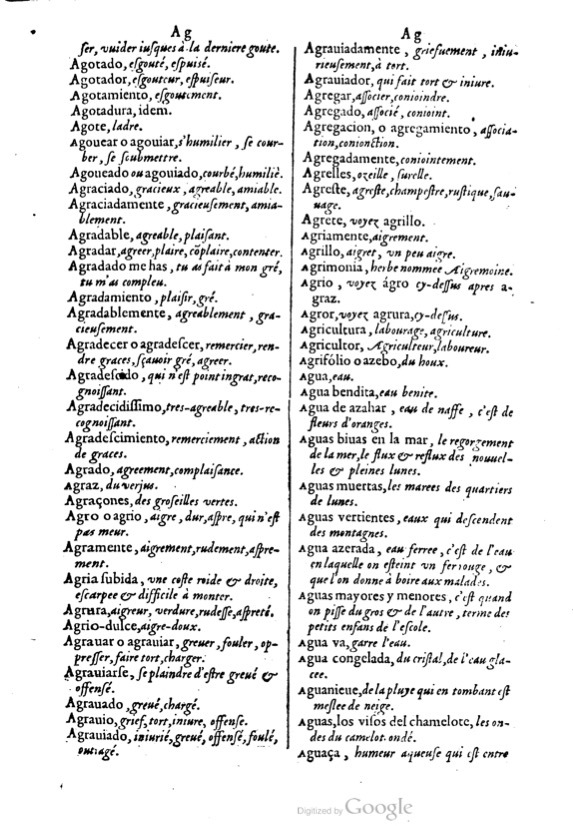 Ag
ser, vuider iusques à la derniere goute.
Agotado, esgouté, espuisé.
Agotador, esgouteur, espuiseur.
Agotamiento, esgoutement.
Agotadura, idem.
Agote, ladre.
Agouear o agouiar, s'humilier, se cour-
ber, se soubmettre.
Agoueado ou agouiado, courbé, humilié.
Agraciado, gracieux, agreable, amiable.
Agraciadamente, gracieusement, amia-
blement.
Agradable, agreable, plaisant.
Agradar, agreer, plaire, cõplaire, contenter.
Agradado me has, tu as fait à mon gré,
tu m'as compleu.
Agradamiento, plaisir, gré.
Agradablemente, agreablement, gra-
cieusement.
Agradecer o agradescer, remercier, ren-
dre graces, sçauoir gré, agreer.
Agradescido, qui n'est point ingrat, reco-
gnoissant.
Agradecidissimo, tres-agreable, tres-re-
cognoissant.
Agradescimiento, remerciement, action
de graces.
Agrado, agreement, complaisance.
Agraz, du verjus.
Agraçones, des groseilles vertes.
Agro o agrio, aigre, dur, aspre, qui n'est
pas meur.
Agramente, aigrement, rudement, aspre-
ment.
Agria subida, vne coste roide & droite,
escarpee & difficile à monter.
Agrura, aigreur, verdure, rudesse, aspreté.
Agrio-dulce, aigre-doux.
Agrauar o agrauiar, greuer, fouler, op-
presser, faire tort, charger.
Agrauiarse, se plaindre d'estre greué &
offensé.
Agrauado, greué, chargé.
Agrauio, grief, tort, iniure, offense.
Agrauiado, iniurié, greué, offensé, foulé,
outragé.
Ag
Agrauiadamente, griefuement, iniu-
rieusement, à tort.
Agrauiador, qui fait tort & iniure.
Agregar, associer, conioindre.
Agregado, associé, conioint.
Agregacion, o agregamiento, associa-
tion, conionction.
Agregadamente, coniointement.
Agrelles, ozeille, surelle.
Agreste, agreste, champestre, rustique, sau-
uage.
Agrete, voyez agrillo.
Agriamente, aigrement.
Agrillo, aigret, vn peu aigre.
Agrimonia, herbe nommee Aigremoine.
Agrio, voyez ágro cy-dessus apres a-
graz.
Agror, voyez agrura, cy-dessus.
Agricultura, labourage, agriculture.
Agricultor, Agriculteur, laboureur.
Agrifólio o azebo, du houx.
Agua, eau.
Agua bendita, eau benite.
Agua de azahar, eau de naffe, c'est de
fleurs d'oranges.
Aguas biuas en la mar, le regorgement
de la mer, le flux & reflux des nouuel-
les & pleines lunes.
Aguas muertas, les marees des quartiers
de lunes.
Aguas vertientes, eaux qui descendent
des montagnes.
Agua azerada, eau ferree, c'est de l'eau
en laquelle on esteint vn fer rouge, &
que l'on donne à boire aux malades.
Aguas mayores y menores, c'est quand
on pisse du gros & de l'autre, terme des
petits enfans de l'escole.
Agua va, garre l'eau.
Agua congelada, du cristal, de l'eau gla-
cee.
Aguanieue, de la pluye qui en tombant est
meslee de neige.
Aguas, los visos del chamelote, les on-
des du camelot ondé.
Aguaça, humeur aqueuse qui est entre
Digitized by Google